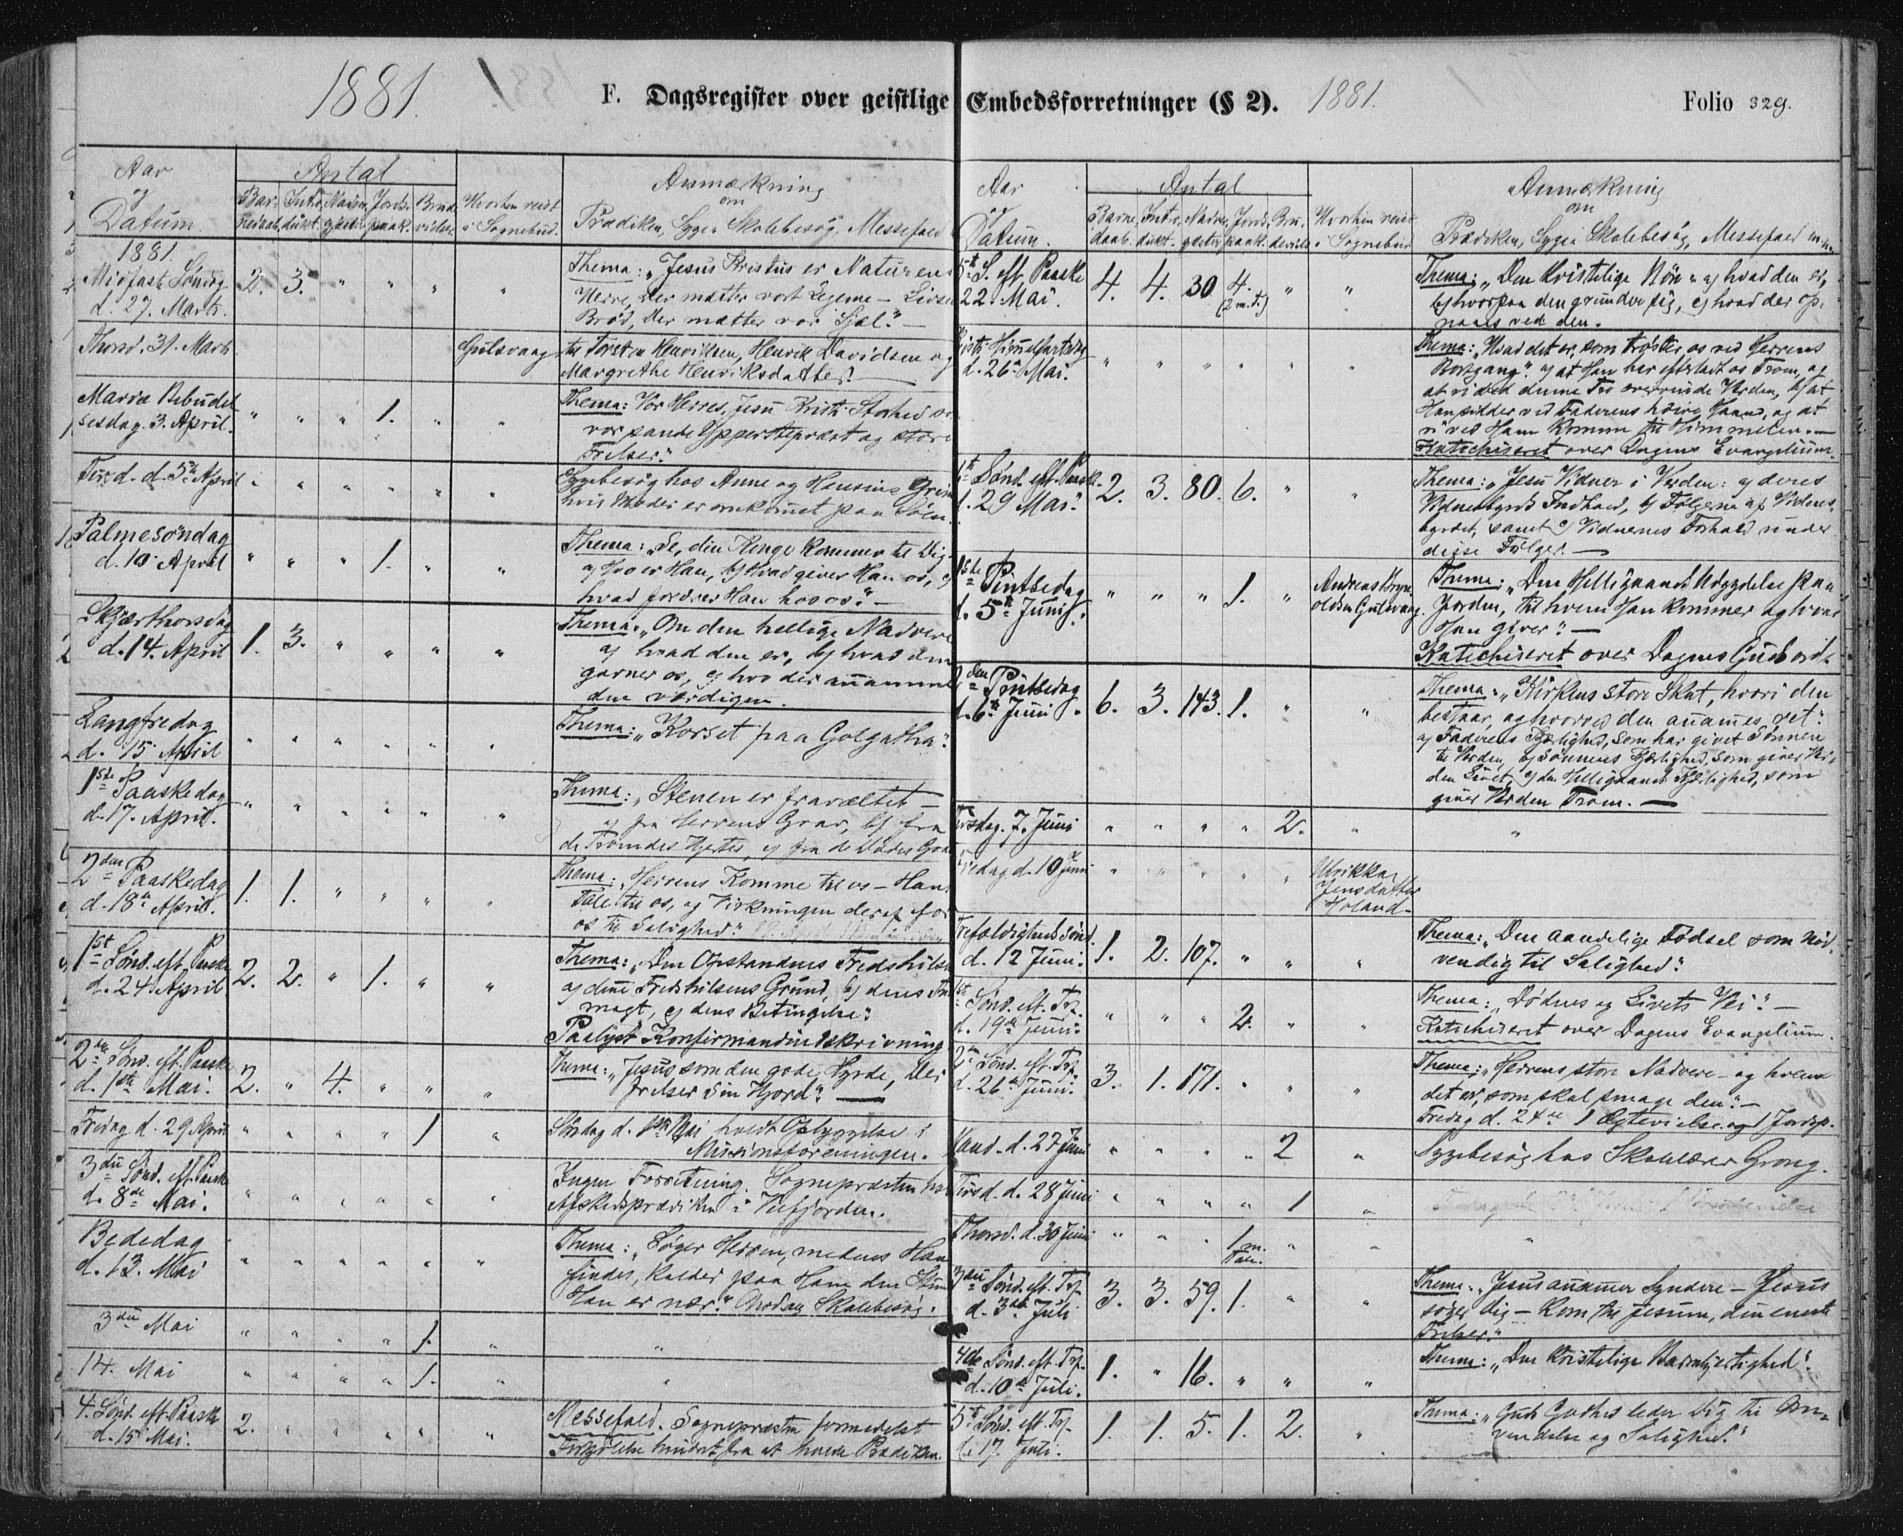 1881.
F. Dagsregister over geistlige
Aar
og
Datum
Antal
Anmærkning
om
Prædiken, Syge- Skolebesøg, Messefald
Hvorhen reist
i Sognebud.
1881.
Midfaste Søndag
d. 27. Marts.
2. 3. " " " "
Thema: "Jesus Kristus er Naturens
Herre, der mætter vort Legeme – Livsens
Brød, der mætter vor Sjæl". –
Thorsd. 31. Marts
til Torsten Henriksen, Henrik Davidsen og
Margrethe Henriksdatter. –
Mariæ Bebudel-
sesdag. 3. April.
" " " 1. " "
Thema: Vor Herres Jesu Kristi Storhed
vor sande Ypperstepræst og store
Frelser."
Tirsd. d. 5te April
" " " " " "
Sygebesøg hos Anne og
hvis Moder er omkommet paa Søen.
Palmesøndag
d. 10. April
" " " 1. " "
Thema: "Se, din Konge kommer til Dig
a) Hvo er Han, b) Hvad giver Han os, c)
hvad fordrer Han hos os". –
Skjærthorsdag
d. 14. April
1. 3. " " " "
Thema: "Om den hellige Nadvere
a) hvad den er, b) hvad den
gavner os, c) hvo der anammer
den værdigen.
Langfredag
d. 15. April
" " " " " "
Thema: "Korset paa Golgatha".
1ste Paaskedag
d. 17. April.
" " " " " "
Thema: "Stenen er fravæltet –
a) fra Herrens Grav, b) fra
de Troendes Hjerter, c) fra de Dødes Grave
2den Paaskedag
d. 18de April.
1. 1. " " " "
Thema: "Herrens Komme til os – Hans
Tale til os, og Virkningen deraf for
os til Salighed."
1st Sønd. eft. Paaske
d. 24 April
2. 2. " 1. " "
Thema: "Den Opstandnes Fredshilsen
a) denne Fredshilsens Grund, b) dens
magt, c) dens Betingelse".
Paalyst Konfirmandindskrivning
2den Sønd. eft. Paaske
d. 1ste Mai.
2. " 4. " " "
Thema: "Jesus som den gode Hyrde, der
frelser sin Hjord". –
Fredag d. 29 April
" " " " 1 "
Søndag d. 1ste Mai holdt Opbyggelse i
Missionsforeningen.
3die Sønd. eft. Paaske
d. 8de Mai.
" " " " " "
Ingen Forretning. Sognepræsten har
Afskedsprædiken i Velfjorden.
Bededag
d. 13. Mai
" " " " " "
Thema: "Søger Herren, medens Han
findes, kalder paa Ham den Stund
Han er nær." Onsdag Skolebesøg.
3die Mai
" " " " 1. " "
14. Mai
" " " " 1. " "
4. Sønd. eft. Paaske
d. 15 Mai.
2. " " " " "
Messefald. Sognepræsten formedelst
Forkjølelse hindret fra at holde Prædiken.
Embedsforretninger (§ 2). 1881.
Folio 329.
Aar
og
Datum.
Antal
Hvorhen reist
i Sognebud
Anmærkning
om
Prædiken, Syge- Skolebesøg, Messefald m.m.
5te S. eft. Paaske
22 Mai.
4. 4. 30 4. " "
(2 m. T.)
Thema: "Den kristelige Bön" a) hvad den er,
b) hvorpaa den grunder sig, c) hvad der op-
naaes ved den.
Kristi Himmelfartsdag
d. 26de Mai.
" " " " " "
Thema: "Hvad det er, som trøster os ved Herrens
Bortgang". a) at Han her efterlader os Troen, og
at vi ved denne Tro overvinde Verden, b) at
Han sidder ved Faderens høire Haand, og at
vi ved Ham komme til Himmelen. –
Katechiseret over Dagens Evangelium.
6te Sønd. eft. Paaske.
d. 29 Mai.
2. 3. 80. 6. " "
Thema: "Jesu Vidner i Verden: a) deres
Vidnesbyrds Indhold, b) Følgerne af Vidnes-
byrdet, samt c) Vidnernes Forhold under
disse Følger. –
1ste Pintsedag
d. 5te Juni.
" " " 1. "
Andreas
oldsen
Thema: "Den Helligaands Udgydelse paa
Jorden, til hvem Han kommer og hvad
Han giver". –
Katechiseret over Dagens Gudsord. –
2den Pintsedag
d. 6te Juni.
6. 3. 143. 1. " "
Thema: "Kirkens store Skat, hvori den
bestaar, og hvorved den anammes ret":
a) Faderens Kjærlighed, som har givet Sønnen
til Verden, b) Sønnens Kjærlighed, som giver Ver-
den Livet, c) den Helligaands Kjærlighed, som
giver Verden Troen. –
Tirsdag. 7. Juni
" " " " 2. " "
Fredag d. 10de Juni
" " " " "
Ulrikka
Jensdatter
Holand –
Trefoldigheds Sønd.
d. 12 Juni.
1. 2. 107. " " "
Thema: "Den aandelige Fødsel som nød-
vendig til Salighed".
1ste Sønd. eft. Trf.
d. 19de Juni.
" " " 2. " "
Thema: "Dødens og Livets Vei". –
Katechiseret over Dagens Evangelium.
2den Sønd. eft. Trf.
d. 26de Juni.
3. 1. 171. " " "
Thema: "Herrens store Nadvere – og hvem
det er, som skal smage den". –
Fredag d. 24de 1 Ægtevielse og 1 Jordsp.
Mand. d. 27 Juni
" " " " 2 "
Sygebesøg hos Skolelærer Grong.
Tirsd. d. 28 Juni
" " " " 1 "
Thorsd. d. 30 Juni
" " " 1 m. Tale. " " "
3die Sønd. eft. Trf.
d. 3die Juli
3. 3. 59. 1. " "
Thema: "Jesus anammer Syndere – Jesus
søger Dig – Kom til Jesum, din eneste
Frelser".
4de Sønd. eft. Trf.
d. 10de Juli.
1. " 16. " " "
Thema: "Den kristelige Barmhjertighed".
5te Sønd. eft. Trf.
d. 17. Juli.
1. 1. 5. 1. 2. "
Thema: "Guds Godhed leder Dig til Om-
vendelse og Salighed."